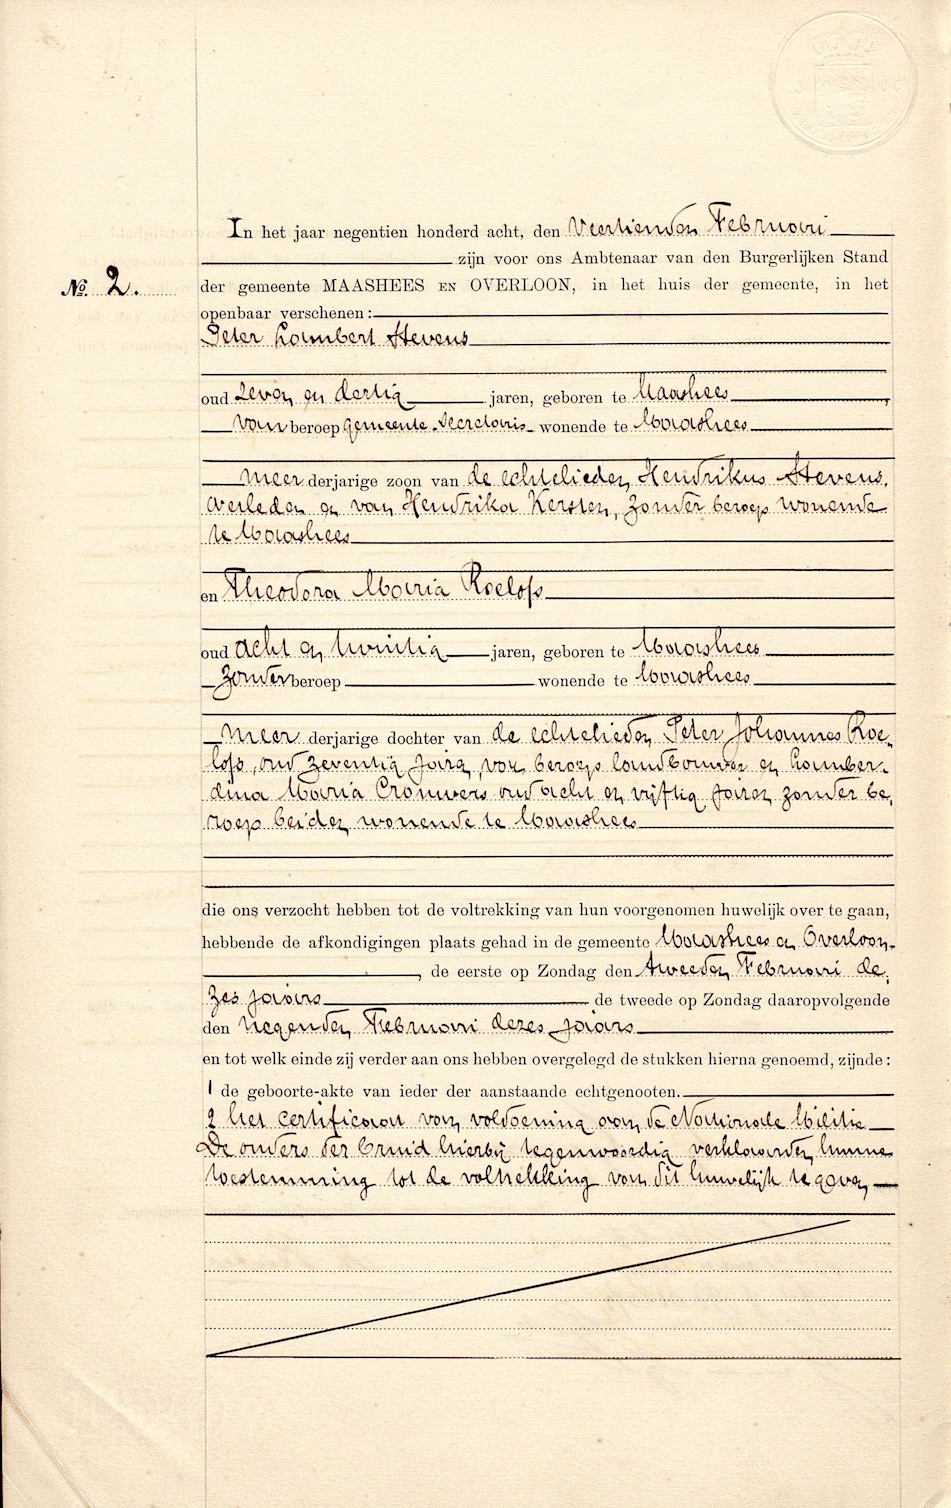 In het jaar negentien honderd acht, den Veertienden Februari
zijn voor ons Ambtenaar van den Burgerlijken Stand
No. 2.
der gemeente MAASHEES EN OVERLOON, in het huis der gemeente, in het
openbaar verschenen:
Peter Lambert Stevens
oud zeven en dertig jaren, geboren te Maashees,
van beroep gemeente-secretaris wonende te Maashees
meerderjarige zoon van de echtelieden Hendrikus Stevens,
overleden en van Hendrika Kersten, zonder beroep wonende
te Maashees
en Theodora Maria Roelofs
oud acht en twintig jaren, geboren te Maashees
zonder beroep wonende te Maashees
meerderjarige dochter van de echtelieden Peter Johannes Roe-
lofs, oud zeventig jaren, van beroep landbouwer en Lamber-
dina Maria Cronwers oud acht en vijftig jaren zonder be-
roep beiden wonende te Maashees
die ons verzocht hebben tot de voltrekking van hun voorgenomen huwelijk over te gaan,
hebbende de afkondigingen plaats gehad in de gemeente Maashees en Overloon
, de eerste op Zondag den tweeden Februari de-
zes jaars de tweede op Zondag daaropvolgende
den negenden Februari dezes jaars
en tot welk einde zij verder aan ons hebben overgelegd de stukken hierna genoemd, zijnde:
1 de geboorte-akte van ieder der aanstaande echtgenooten.
2 het certificaat van voldoening aan de Nationale Militie
De ouders der bruid hierbij tegenwoordig verklaarden hunne
toestemming tot de voltrekking van dit huwelijk te geven